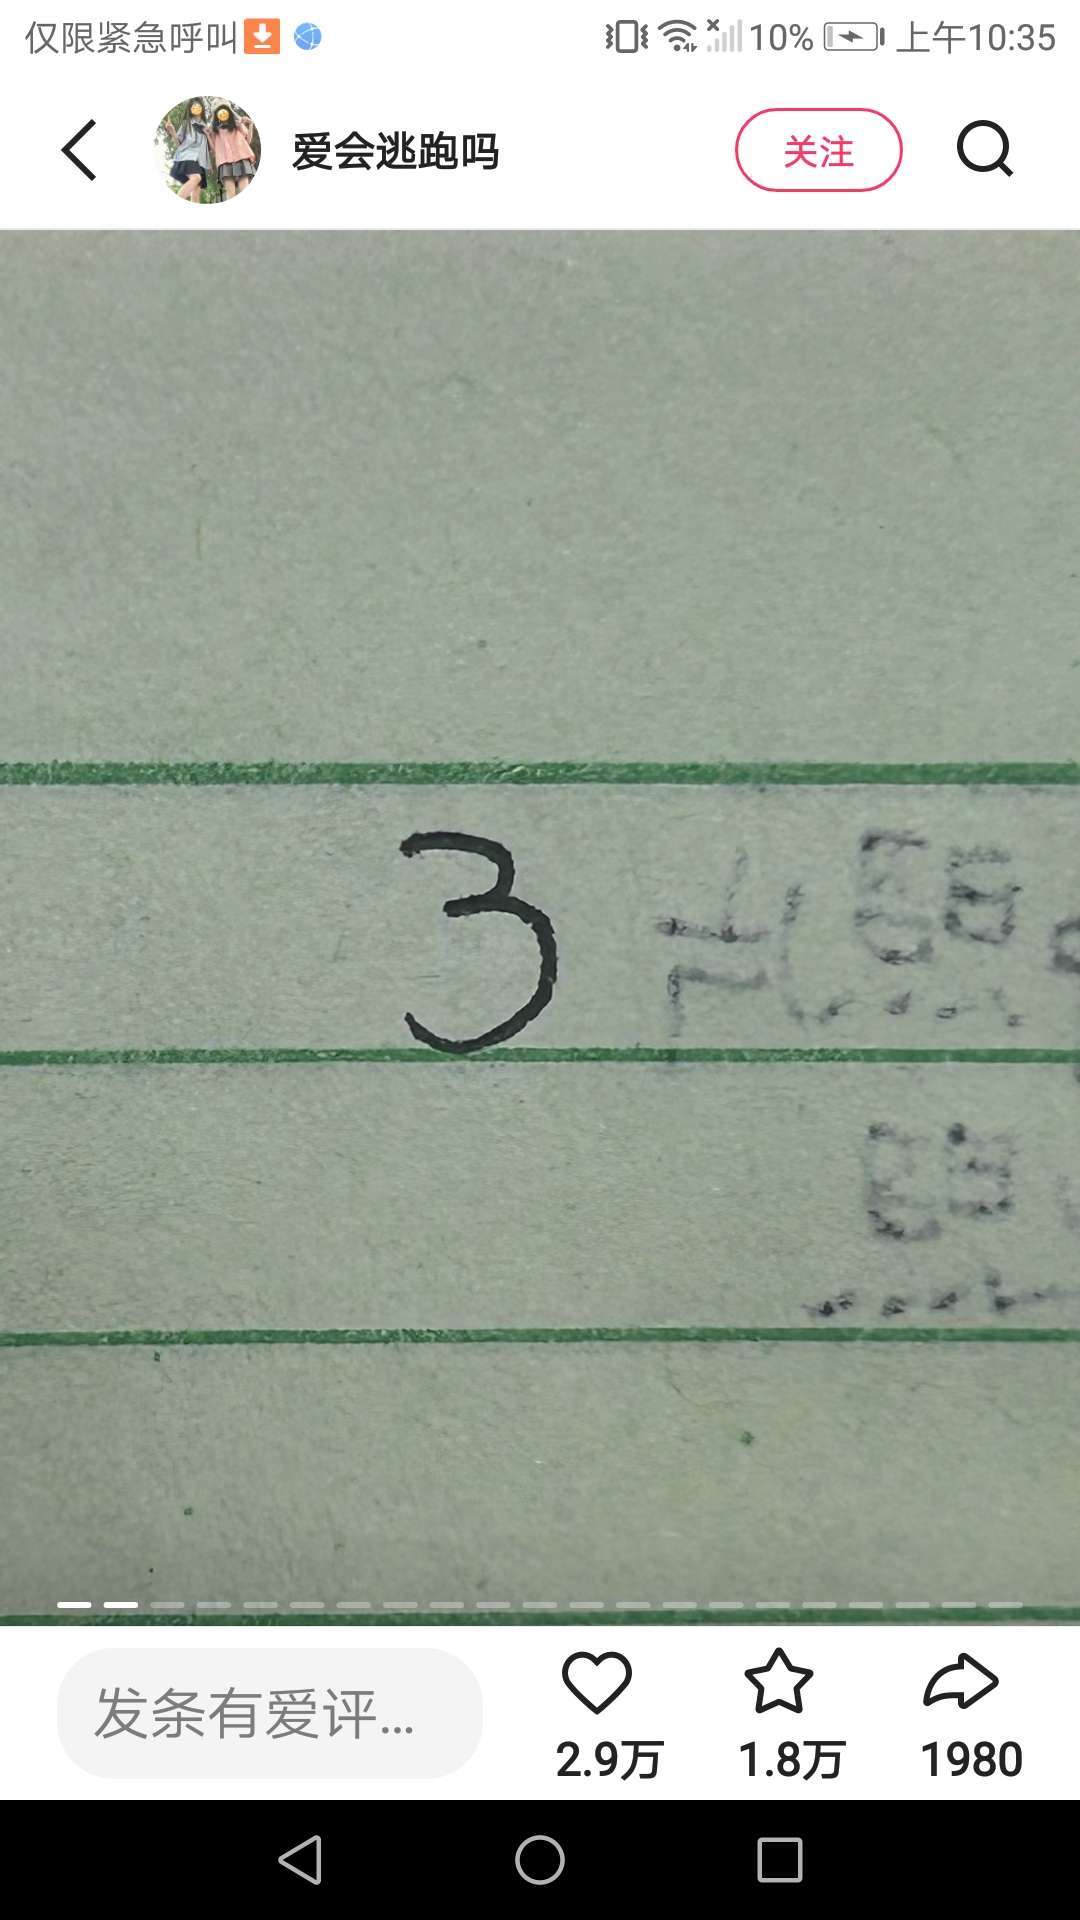 仅限紧急呼叫 10% 上午10:35
爱会逃跑吗 关注
3
发条有爱评...
2.9万 1.8万 1980